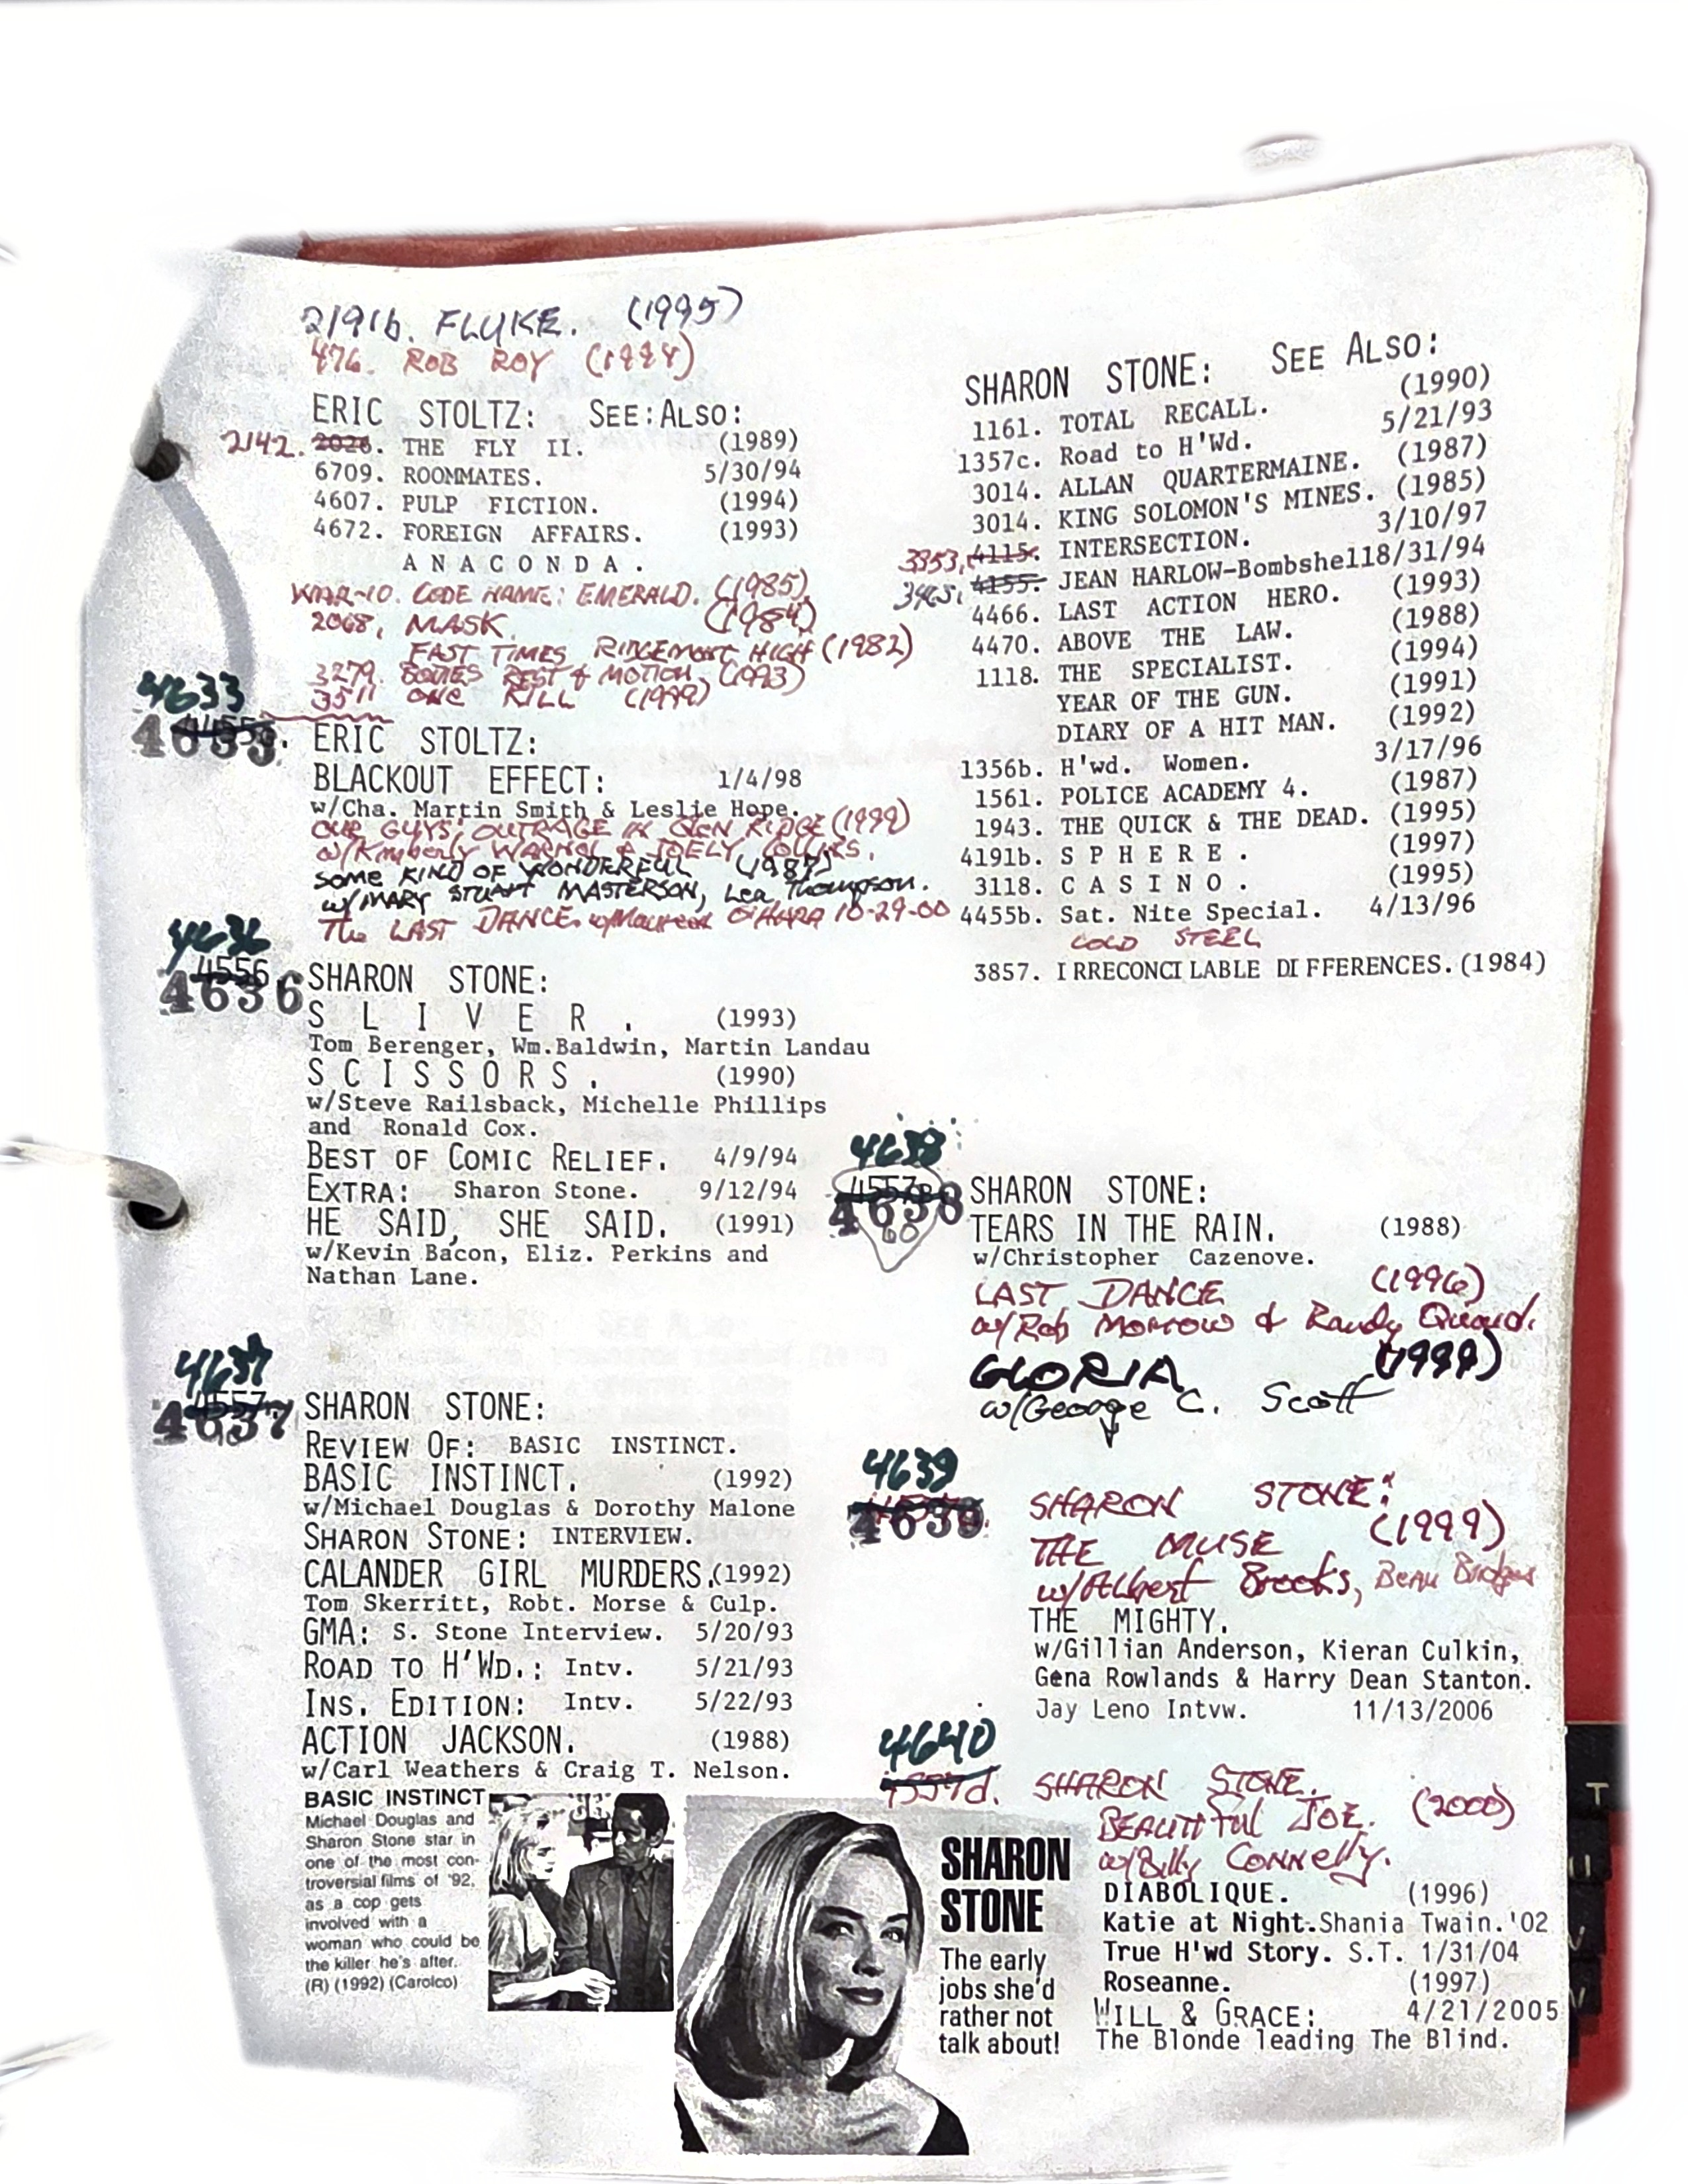 2191b. FLUKE. (1995)
476. ROB ROY (1994)
ERIC STOLTZ: SEE:ALSO:
2142. 2026. THE FLY II. (1989)
6709. ROOMMATES. 5/30/94
4607. PULP FICTION. (1994)
4672. FOREIGN AFFAIRS. (1993)
A N A C O N D A .
WAR-10. CODE NAME: EMERALD. (1985)
2068. MASK. (1984)
FAST TIMES RIDGEMONT HIGH (1982)
3279. BODIES REST & MOTION, (1993)
3511 ONE KILL (1999)
4633
4633. ERIC STOLTZ:
BLACKOUT EFFECT: 1/4/98
w/Cha. Martin Smith & Leslie Hope.
OUR GUYS; OUTRAGE IN GLEN RIDGE (1999)
w/Kimberly & JOELY COLLINS.
SOME KIND OF WONDERFUL (1987)
w/MARY STUART MASTERSON, Lea Thompson.
The LAST DANCE. w/Maureen O'HARA 10-29-00
4636
4556
4636 SHARON STONE:
S L I V E R . (1993)
Tom Berenger, Wm.Baldwin, Martin Landau
S C I S S O R S . (1990)
w/Steve Railsback, Michelle Phillips
and Ronald Cox.
BEST OF COMIC RELIEF. 4/9/94
EXTRA: Sharon Stone. 9/12/94
HE SAID, SHE SAID. (1991)
w/Kevin Bacon, Eliz. Perkins and
Nathan Lane.
4637
4557
4637 SHARON STONE:
REVIEW OF: BASIC INSTINCT.
BASIC INSTINCT. (1992)
w/Michael Douglas & Dorothy Malone
SHARON STONE: INTERVIEW.
CALANDER GIRL MURDERS.(1992)
Tom Skerritt, Robt. Morse & Culp.
GMA: S. Stone Interview. 5/20/93
ROAD TO H'WD.: Intv. 5/21/93
INS. EDITION: Intv. 5/22/93
ACTION JACKSON. (1988)
w/Carl Weathers & Craig T. Nelson.
BASIC INSTINCT
Michael Douglas and
Sharon Stone star in
one of the most con-
troversial films of '92,
as a cop gets
involved with a
woman who could be
the killer he's after.
(R) (1992) (Carolco)
SHARON
STONE
The early
jobs she'd
rather not
talk about!
SHARON STONE: SEE ALSO:
1161. TOTAL RECALL. (1990)
1357c. Road to H'Wd. 5/21/93
3014. ALLAN QUARTERMAINE. (1987)
3014. KING SOLOMON'S MINES. (1985)
3953. 4115. INTERSECTION. 3/10/97
3465. 4155. JEAN HARLOW-Bombshell8/31/94
4466. LAST ACTION HERO. (1993)
4470. ABOVE THE LAW. (1988)
1118. THE SPECIALIST. (1994)
YEAR OF THE GUN. (1991)
DIARY OF A HIT MAN. (1992)
1356b. H'wd. Women. 3/17/96
1561. POLICE ACADEMY 4. (1987)
1943. THE QUICK & THE DEAD. (1995)
4191b. S P H E R E . (1997)
3118. C A S I N O . (1995)
4455b. Sat. Nite Special. 4/13/96
COLD STEEL
3857. IRRECONCILABLE DIFFERENCES.(1984)
4638
4557B
4638 SHARON STONE:
60
TEARS IN THE RAIN. (1988)
w/Christopher Cazenove.
LAST DANCE (1996)
w/Rob Morrow & Randy Quaid.
GLORIA (1999)
w/George C. Scott
4639
4639. SHARON STONE:
THE MUSE (1999)
w/Albert Brooks, Beau Bridges
THE MIGHTY.
w/Gillian Anderson, Kieran Culkin,
Gena Rowlands & Harry Dean Stanton.
Jay Leno Intvw. 11/13/2006
4640
4557d. SHARON STONE.
BEAUTIFUL JOE. (2000)
w/Billy Connelly.
DIABOLIQUE. (1996)
Katie at Night.Shania Twain.'02
True H'wd Story. S.T. 1/31/04
Roseanne. (1997)
WILL & GRACE: 4/21/2005
The Blonde leading The Blind.